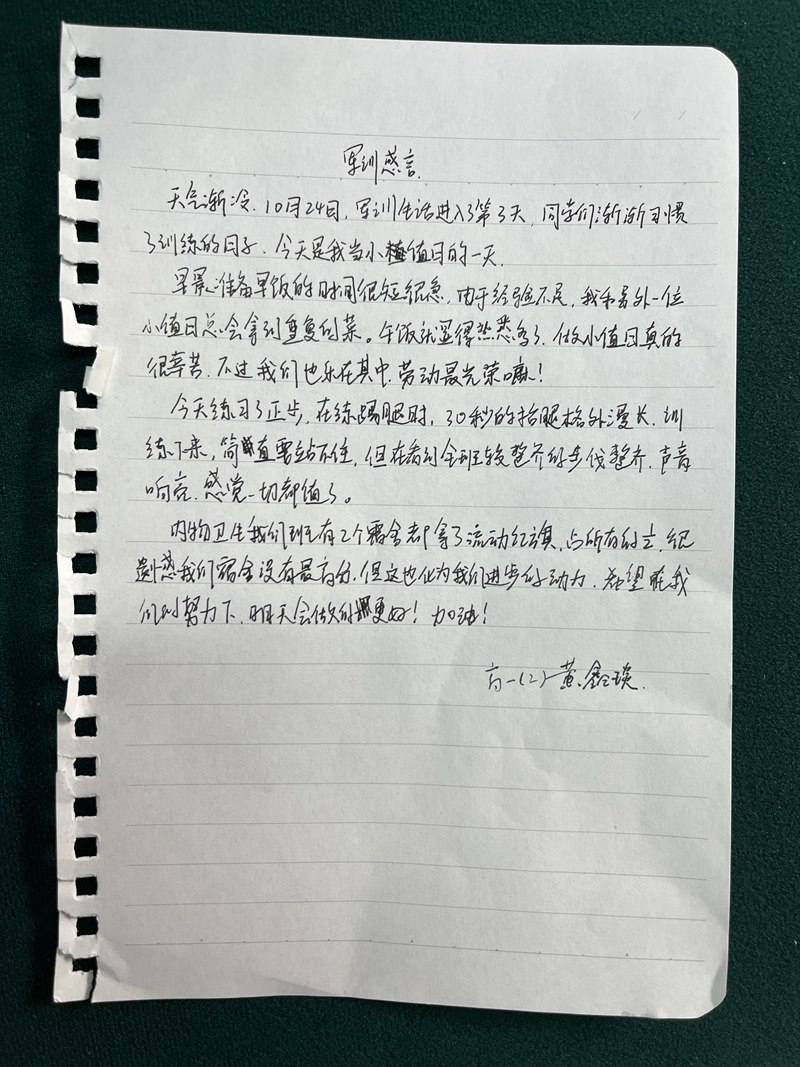 军训感言
天气渐冷,10月24日,军训生活进入了第3天,同学们渐渐习惯
了训练的日子,今天是我当小值日的一天,
早晨准备早饭的时间很短很急,由于经验不足,我和另外一位
小值日总会拿到重复的菜。午饭就显得熟悉多了,做小值日真的
很辛苦,不过我们也乐在其中,劳动最光荣嘛!
今天练习了正步,在练踢腿时,30秒的抬腿格外漫长,训
练下来,简直要站不住,但在看到全班较整齐的步伐整齐,声音
响亮,感觉一切都值了。
内务卫生我们班有2个宿舍都拿了流动红旗,占所有的,很
遗憾我们宿舍没有最高分,但这也化为我们进步的动力,希望在我
们的努力下,明天会做的更好!加油!
高一(2)黄鑫琰